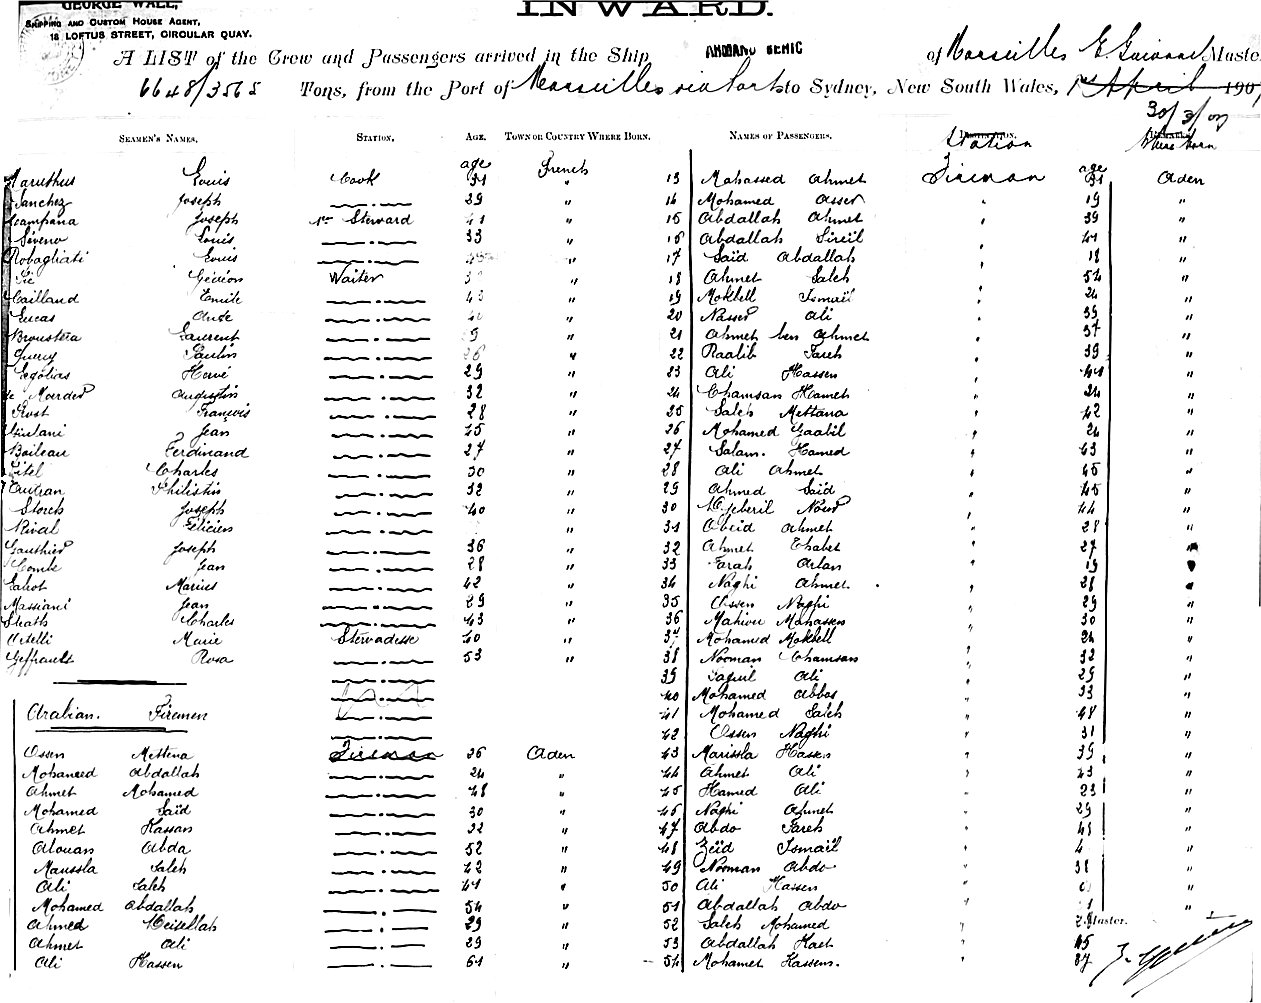 GEORGE WALL,
SHIPPING AND CUSTOM HOUSE AGENT,
18 LOFTUS STREET, CIRCULAR QUAY.
INWARD.
A LIST of the Crew and Passengers arrived in the Ship ARMAND BEHIC of Marseilles Master
6648/3565 Tons, from the Port of Marseilles via Ports to Sydney, New South Wales, 1st April 190
30/3/07
SEAMEN'S NAMES, STATION, AGE. TOWN OR COUNTRY WHERE BORN. NAMES OF PASSENGERS. Station age Where born
Louis Cook age 31 French 13 Mahassed Ahmet Fireman 31 Aden
Sanchez Joseph 29 " 14 Mohamed Asser 19 "
Scampana Joseph 1er Steward 41 " 15 Abdallah Ahmet 39 "
Severo Louis 33 " 16 Abdallah 41 "
Robagliati Louis " 17 Saïd Abdallah 18 "
Gédéon Waiter " 18 Ahmet Saleh 54 "
Caillaud Emile 43 " 19 Mokbell Ismaïl 24 "
Lucas Ange " 20 Nasser Ali 39 "
Laurent " 21 Ahmet ben Ahmet 37 "
Paulin 26 " 22 Raalib Sareh 39 "
Sególias Hervé 29 " 23 Ali Hassen 44 "
Augustin 32 " 24 Chamsan Hameh 24 "
Prost François 28 " 25 Saleh Mettana 42 "
Giulani Jean 45 " 26 Mohamed Gaabil 24 "
Boileau Ferdinand 27 " 27 Salam. Hamed 43 "
Titel Charles 30 " 28 Ali Ahmet 45 "
Philistin 32 " 29 Ahmed Saïd 45 "
Storck Joseph 40 " 30 44 "
Rival Félicien " 31 Obeid Ahmet 28 "
Gauthier Joseph 36 " 32 Ahmet Thabet 27 "
Combe Jean 28 " 33 Farah 19 "
Marius 42 " 34 Naghi Ahmet. 28 "
Massiani Jean 29 " 35 Ossen Naghi 29 "
Charles 43 " 36 Mahassen 30 "
Marie Stewadesse 40 " 37 Mohamed Mokbell 24 "
Rosa 53 " 38 Nooman Chamsan 32 "
39 Ali 29 "
40 Mohamed Abbas 33 "
Arabian. Firemen 41 Mohamed Saleh 48 "
42 Ossen Naghi 31 "
Ossen Mettena Fireman 36 Aden 43 Marissla Hassen 39 "
Mohameed Abdallah 24 " 44 Ahmet Ali 43 "
Ahmet Mohamed 48 " 45 Hamed Ali 23 "
Mohamed Saïd 30 " 46 Naghi Ahmet 29 "
Ahmet Hassan 32 " 47 Abdo Sareh 41 "
Alouan Abda 52 " 48 Zeïd Ismaïl 4 "
Maussla Saleh 42 " 49 Nooman Abdo 38 "
Ali Saleh 41 " 50 Ali Hassen "
Mohamed Abdallah 54 " 51 Abdallah Abdo "
Ahmed 29 " 52 Saleh Mohamed Master.
Ahmet Ali 29 " 53 Abdallah 45
Ali Hassen 61 " 54 Mohamet Hassens. 37